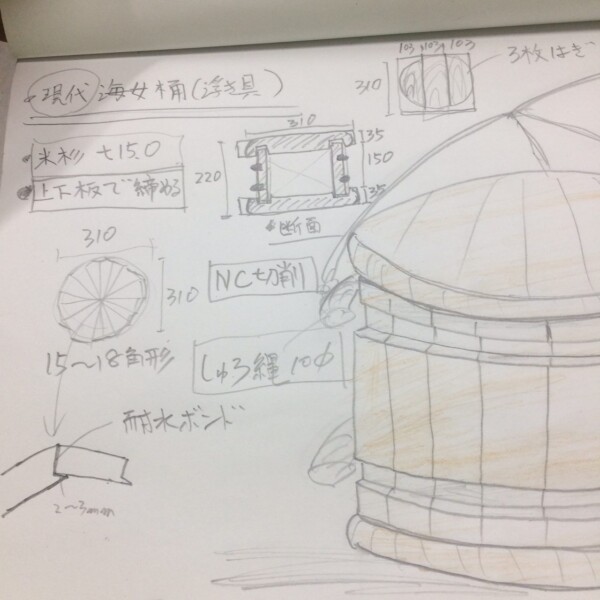 現代 海女桶(浮き具)
米杉 t15.0
上下板で締める
310
310
15～18角形
耐水ボンド
2～3mm
310
220
35
150
35
断面
NC切削
しゅろ縄 10φ
103 103 103
310
3枚はぎ